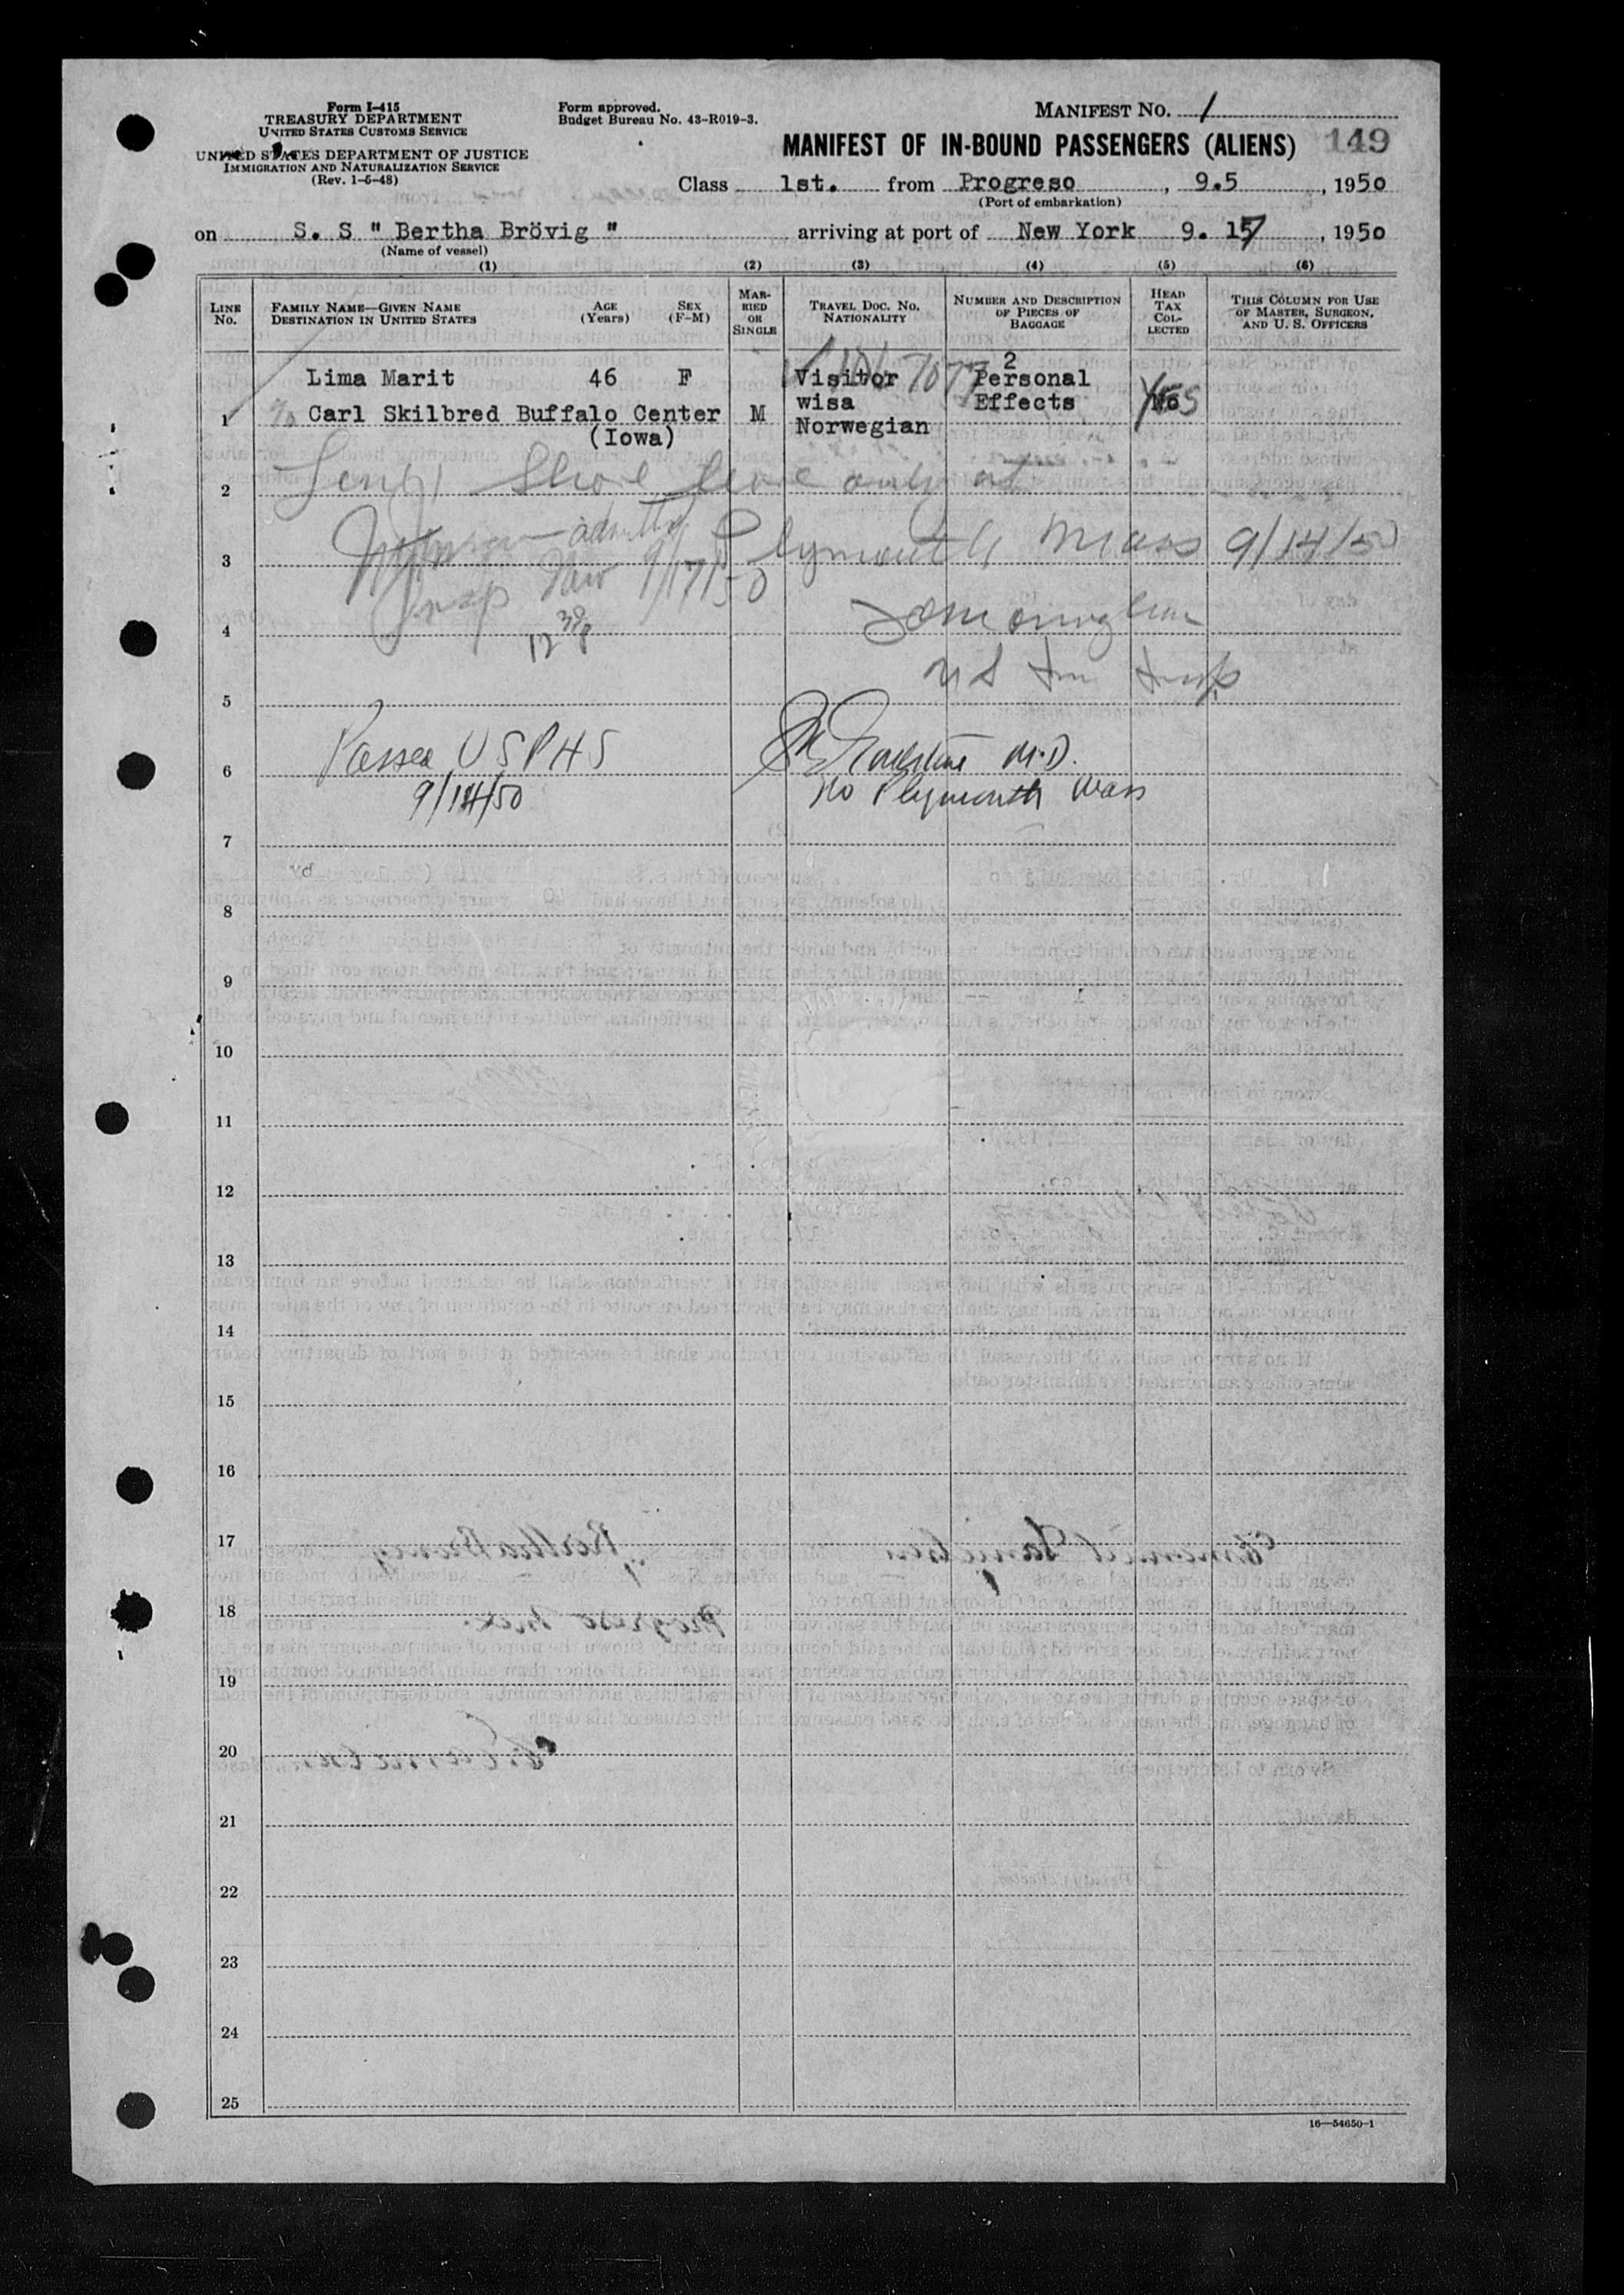 Form I-415
TREASURY DEPARTMENT
UNITED STATES CUSTOMS SERVICE
UNITED STATES DEPARTMENT OF JUSTICE
IMMIGRATION AND NATURALIZATION SERVICE
(Rev. 1-6-48)
Form approved.
Budget Bureau No. 43-R019-3.
MANIFEST NO. 1
MANIFEST OF IN-BOUND PASSENGERS (ALIENS) 149
Class 1st. from Progreso, 9.5, 1950
(Port of embarkation)
on S. S " Bertha Brövig " arriving at port of New York 9. 17, 1950
(Name of vessel)
(1) (2) (3) (4) (5) (6)
LINE No.
FAMILY NAME—GIVEN NAME
DESTINATION IN UNITED STATES
AGE (Years)
SEX (F-M)
MARRIED OR SINGLE
TRAVEL DOC. NO.
NATIONALITY
NUMBER AND DESCRIPTION OF PIECES OF BAGGAGE
HEAD TAX COLLECTED
THIS COLUMN FOR USE OF MASTER, SURGEON, AND U. S. OFFICERS
1 Lima Marit 46 F Visitor 7077 2 Personal
c/o Carl Skilbred Buffalo Center M wisa Effects Yes
(Iowa) Norwegian
2 Shore leave only at
3 admitted Plymouth Mass 9/14/50
Insp 9/17/50
4 12 30 P
U S Imm Insp
5
6 Passed USPHS M.D.
9/14/50 Plymouth Mass
7
8
9
10
11
12
13
14
15
16
17
18
19
20
21
22
23
24
25
16—54650-1